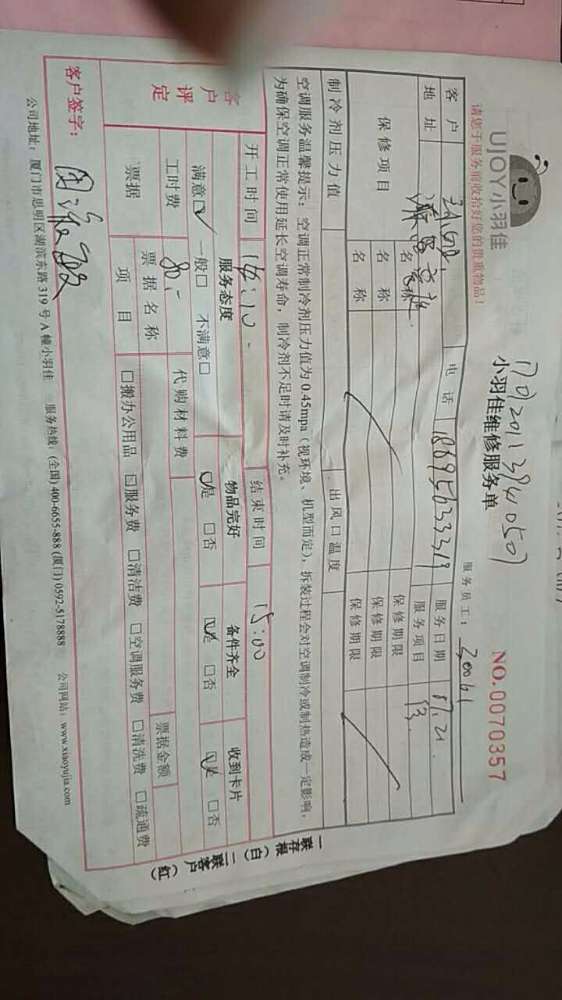 UJOY小羽佳
请您于服务前收拾好您的贵重物品！
小羽佳维修服务单
NO.0070357
服务员工：
客户
电话 18695633319
服务日期 17.21
地址
服务项目
保修项目
名称
保修期限
名称
保修期限
制冷剂压力值
出风口温度
保修期限
空调服务温馨提示：空调正常制冷剂压力值为0.45mpa（视环境、机型而定），拆装过程会对空调制冷或制热造成一定影响，
为确保空调正常使用延长空调寿命，制冷剂不足时请及时补充。
开工时间 14:10
结束时间 15:00
客户评定
服务态度
物品完好
备件齐全
收到卡片
满意☑ 一般□ 不满意□
☑是 □否
☑是 □否
☑是 □否
工时费 80.-
代购材料费
票据
票据名称
票据金额
项目
□搬办公用品 □服务费 □清洁费 □空调服务费 □清洗费 □疏通费
客户签字：
公司地址：厦门市思明区湖滨东路319号A幢小羽佳 服务热线：(全国) 400-6655-888 (厦门) 0592-5178888 公司网站：www.xiaoyujia.com
一联存根（白） 二联客户（红）